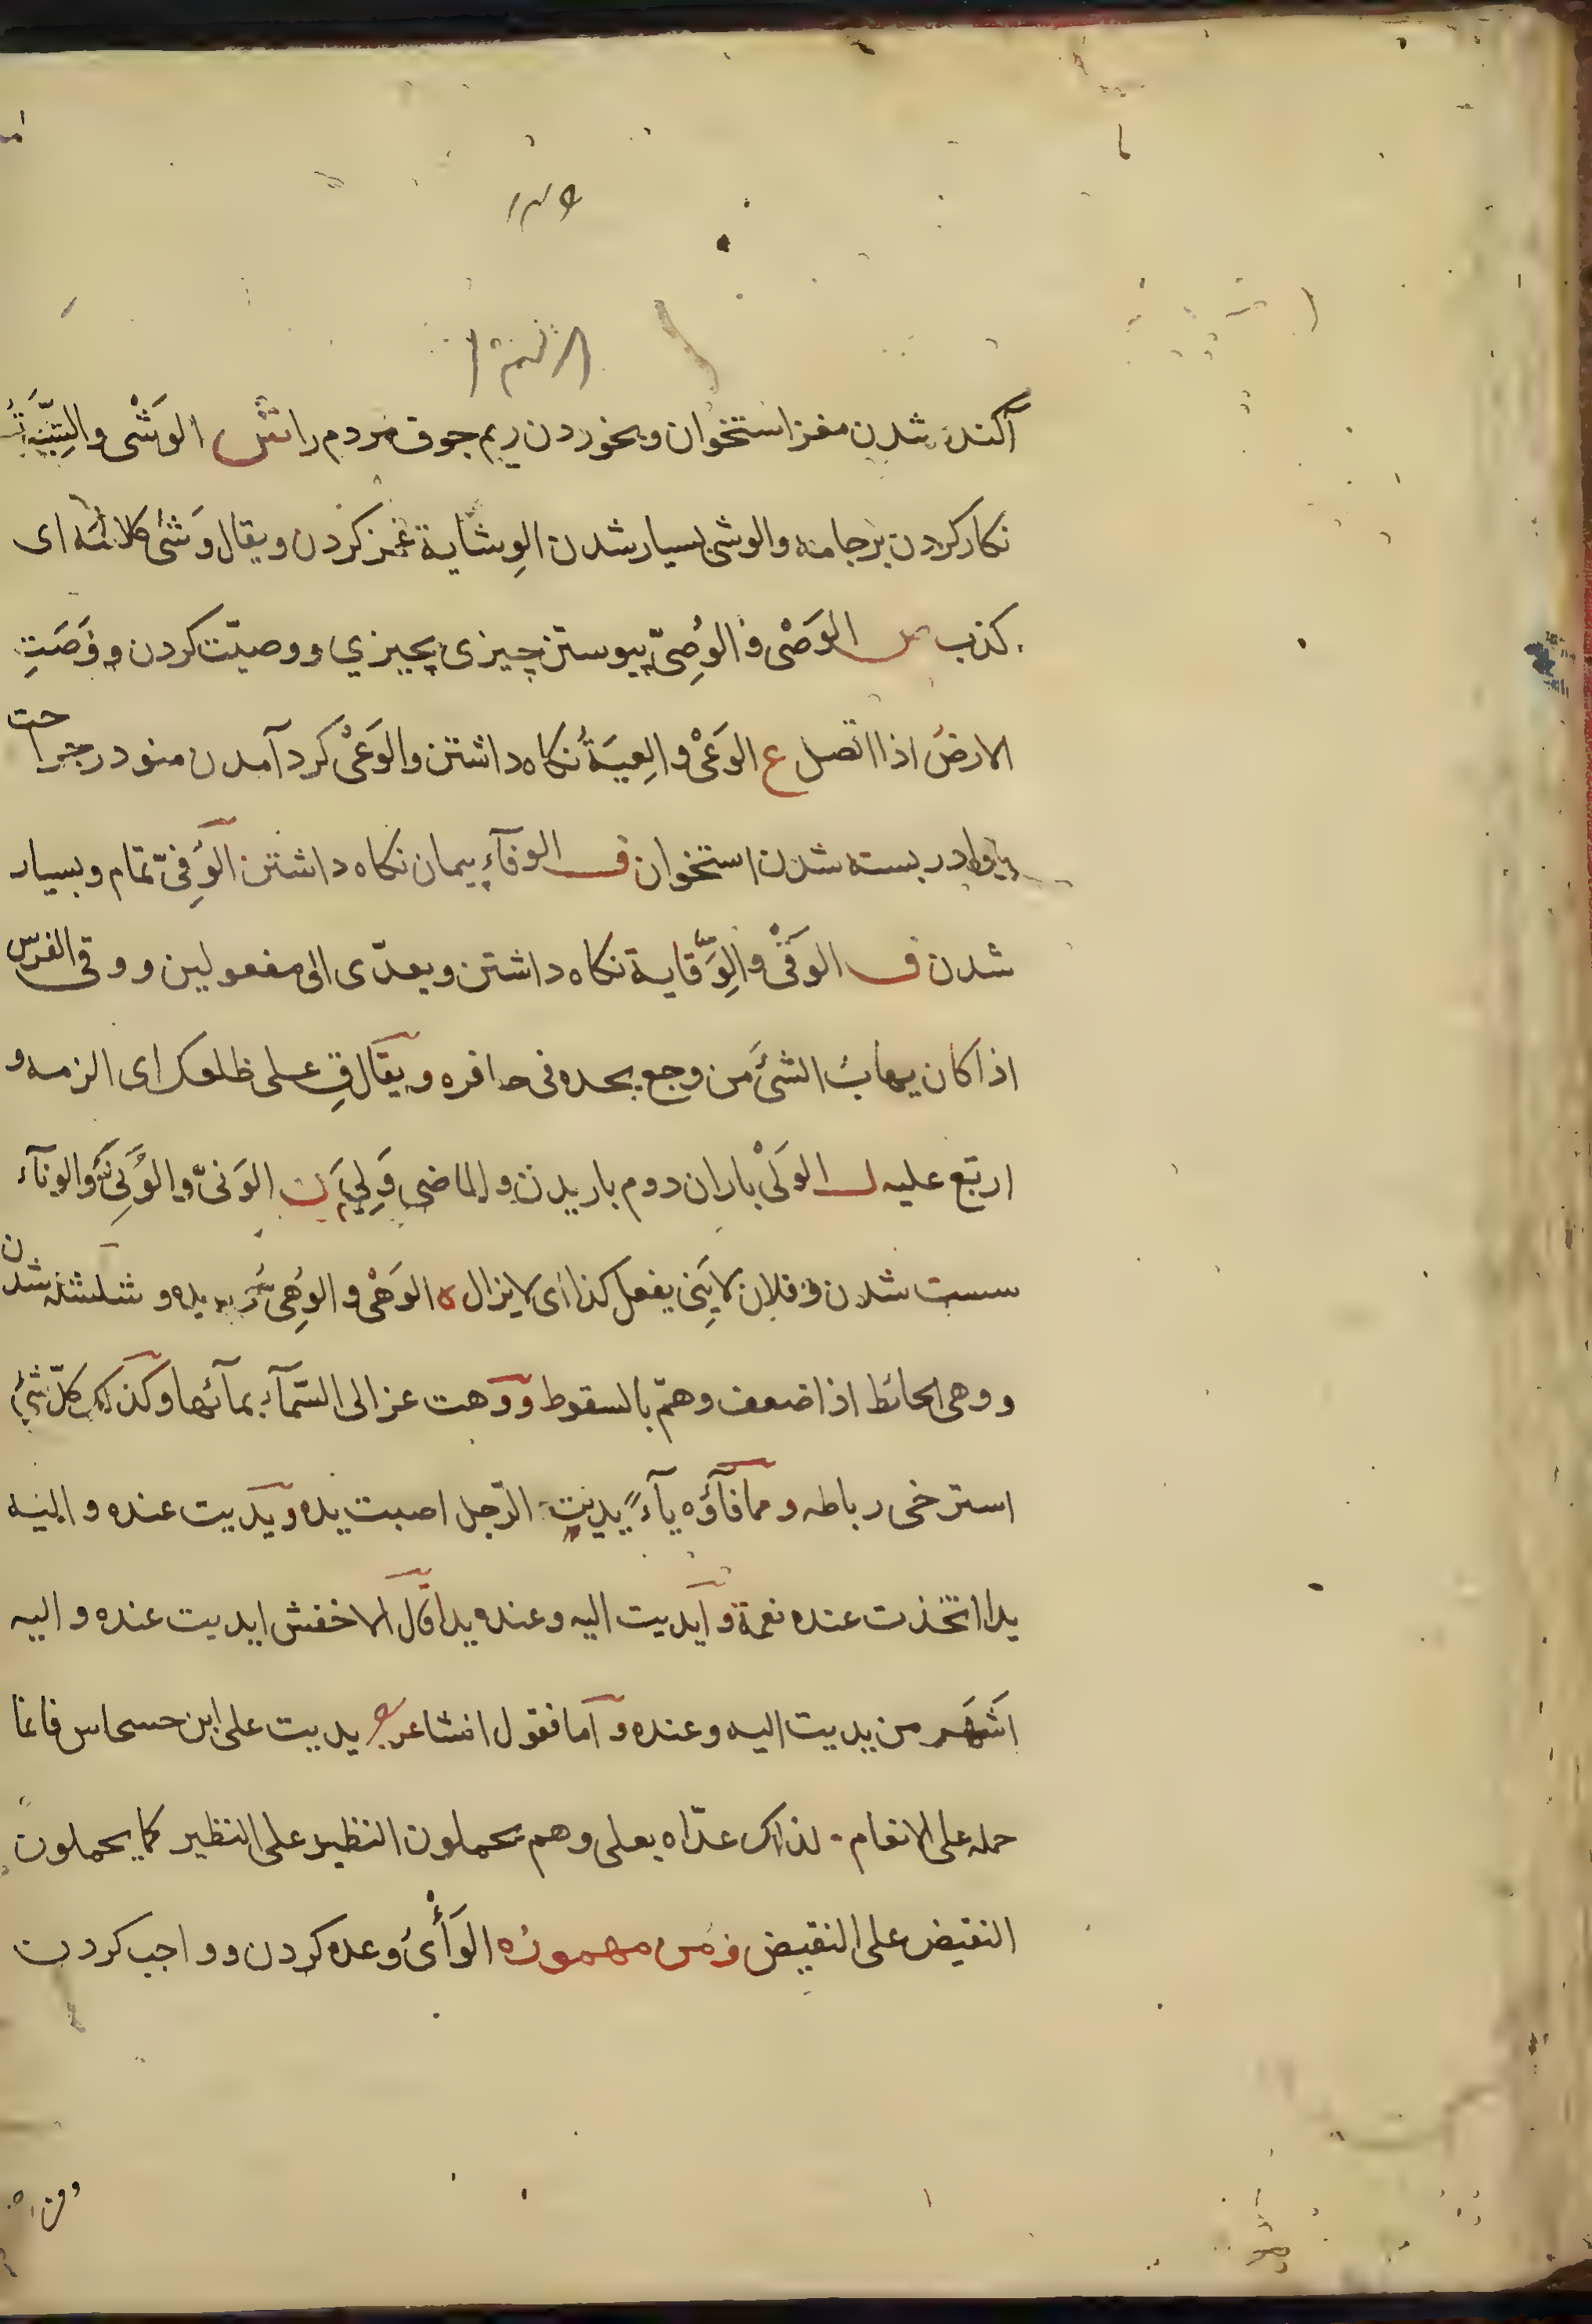 آکنده شدن مغز استخوان و بخوردن ریم جوف مردم را ش الوَشْی والشِّیَةُ
نکار کردن بر جامه والوشی بسیار شدن الوِشایة غمز کردن و یقال وَشَی کلامَه ای
کذب ص الوَصْی و الوُصِیّ پیوستن چیزی بچیزی و وصیّت کردن و وَصَتِ
الارضُ اذا اتصل ع الوَعْی و العِیَةُ نکاه داشتن والوَعْی کرد آمدن منو در جراحت
در بسته شدن استخوان ف الوفآء پیمان نکاه داشتن الوُفِیّ تمام و بسیار
شدن ق الوَقْی والوِقایة نکاه داشتن و یعدّی الی مفعولین و وقی الفرس
اذا کان یهابُ الشئَ من وجع یجده فی حافره و یقال قِ علی ظلعک ای الزمه و
اربع علیه ل الوَلْی باران دوم باریدن و الماضی وَلِیَ ن الوَنْی والوُنِیّ والونآء
سست شدن و فلان لا یَنِی یفعل کذا ای لا یزال ه الوَهْی و الوُهِی دریده و شکسته شدن
و وهی الحائط اذا ضعف و همّ بالسقوط و وهت عزالی السّمآء بمآئها و کذلک کلّ شئٍ
استرخی رباطه و مما فآؤه یآءٌ یدیت الرّجل اصبت یده و یدیت عنده و الیه
یدا اتخذت عنده نعمة و ایدیت الیه و عنده یدا قال الاخفش ایدیت عنده و الیه
اشهَر من یدیت الیه و عنده و اما فقول الشاعر یدیت علی ابن حسحاس فانما
حمله علی الانعام لذلک عدّاه بعلی و هم یحملون النظیر علی النظیر کما یحملون
النقیض علی النقیض و من مهموزه الوَأْیُ وعده کردن و واجب کردن